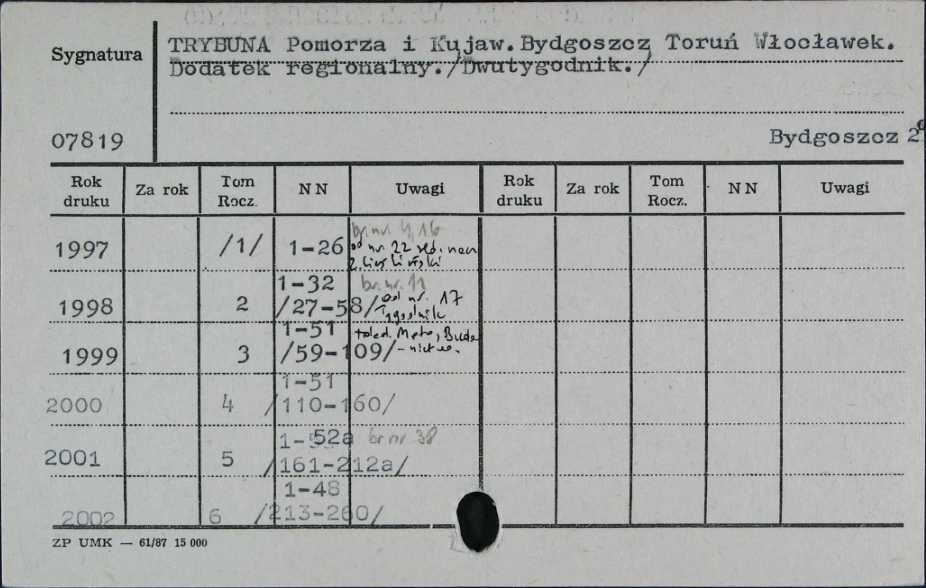 Sygnatura
TRYBUNA Pomorza i Kujaw.Bydgoszcz Toruń Włocławek.
Dodatek regionalny./Dwutygodnik./
07819
Bydgoszcz 2°
Rok druku Za rok Tom Rocz. NN Uwagi Rok druku Za rok Tom Rocz. NN Uwagi
br. nr. 4, 16
1997 /1/ 1-26 od nr. 22 red. nacz
1-32 br. nr. 11
1998 2 /27-58/ od nr. 17
Tygodnik
1-51
1999 3 /59-109/
1-51
2000 4 /110-160/
1-52a br nr 38
2001 5 /161-212a/
1-48
2002 6 /213-260/
ZP UMK — 61/87 15 000